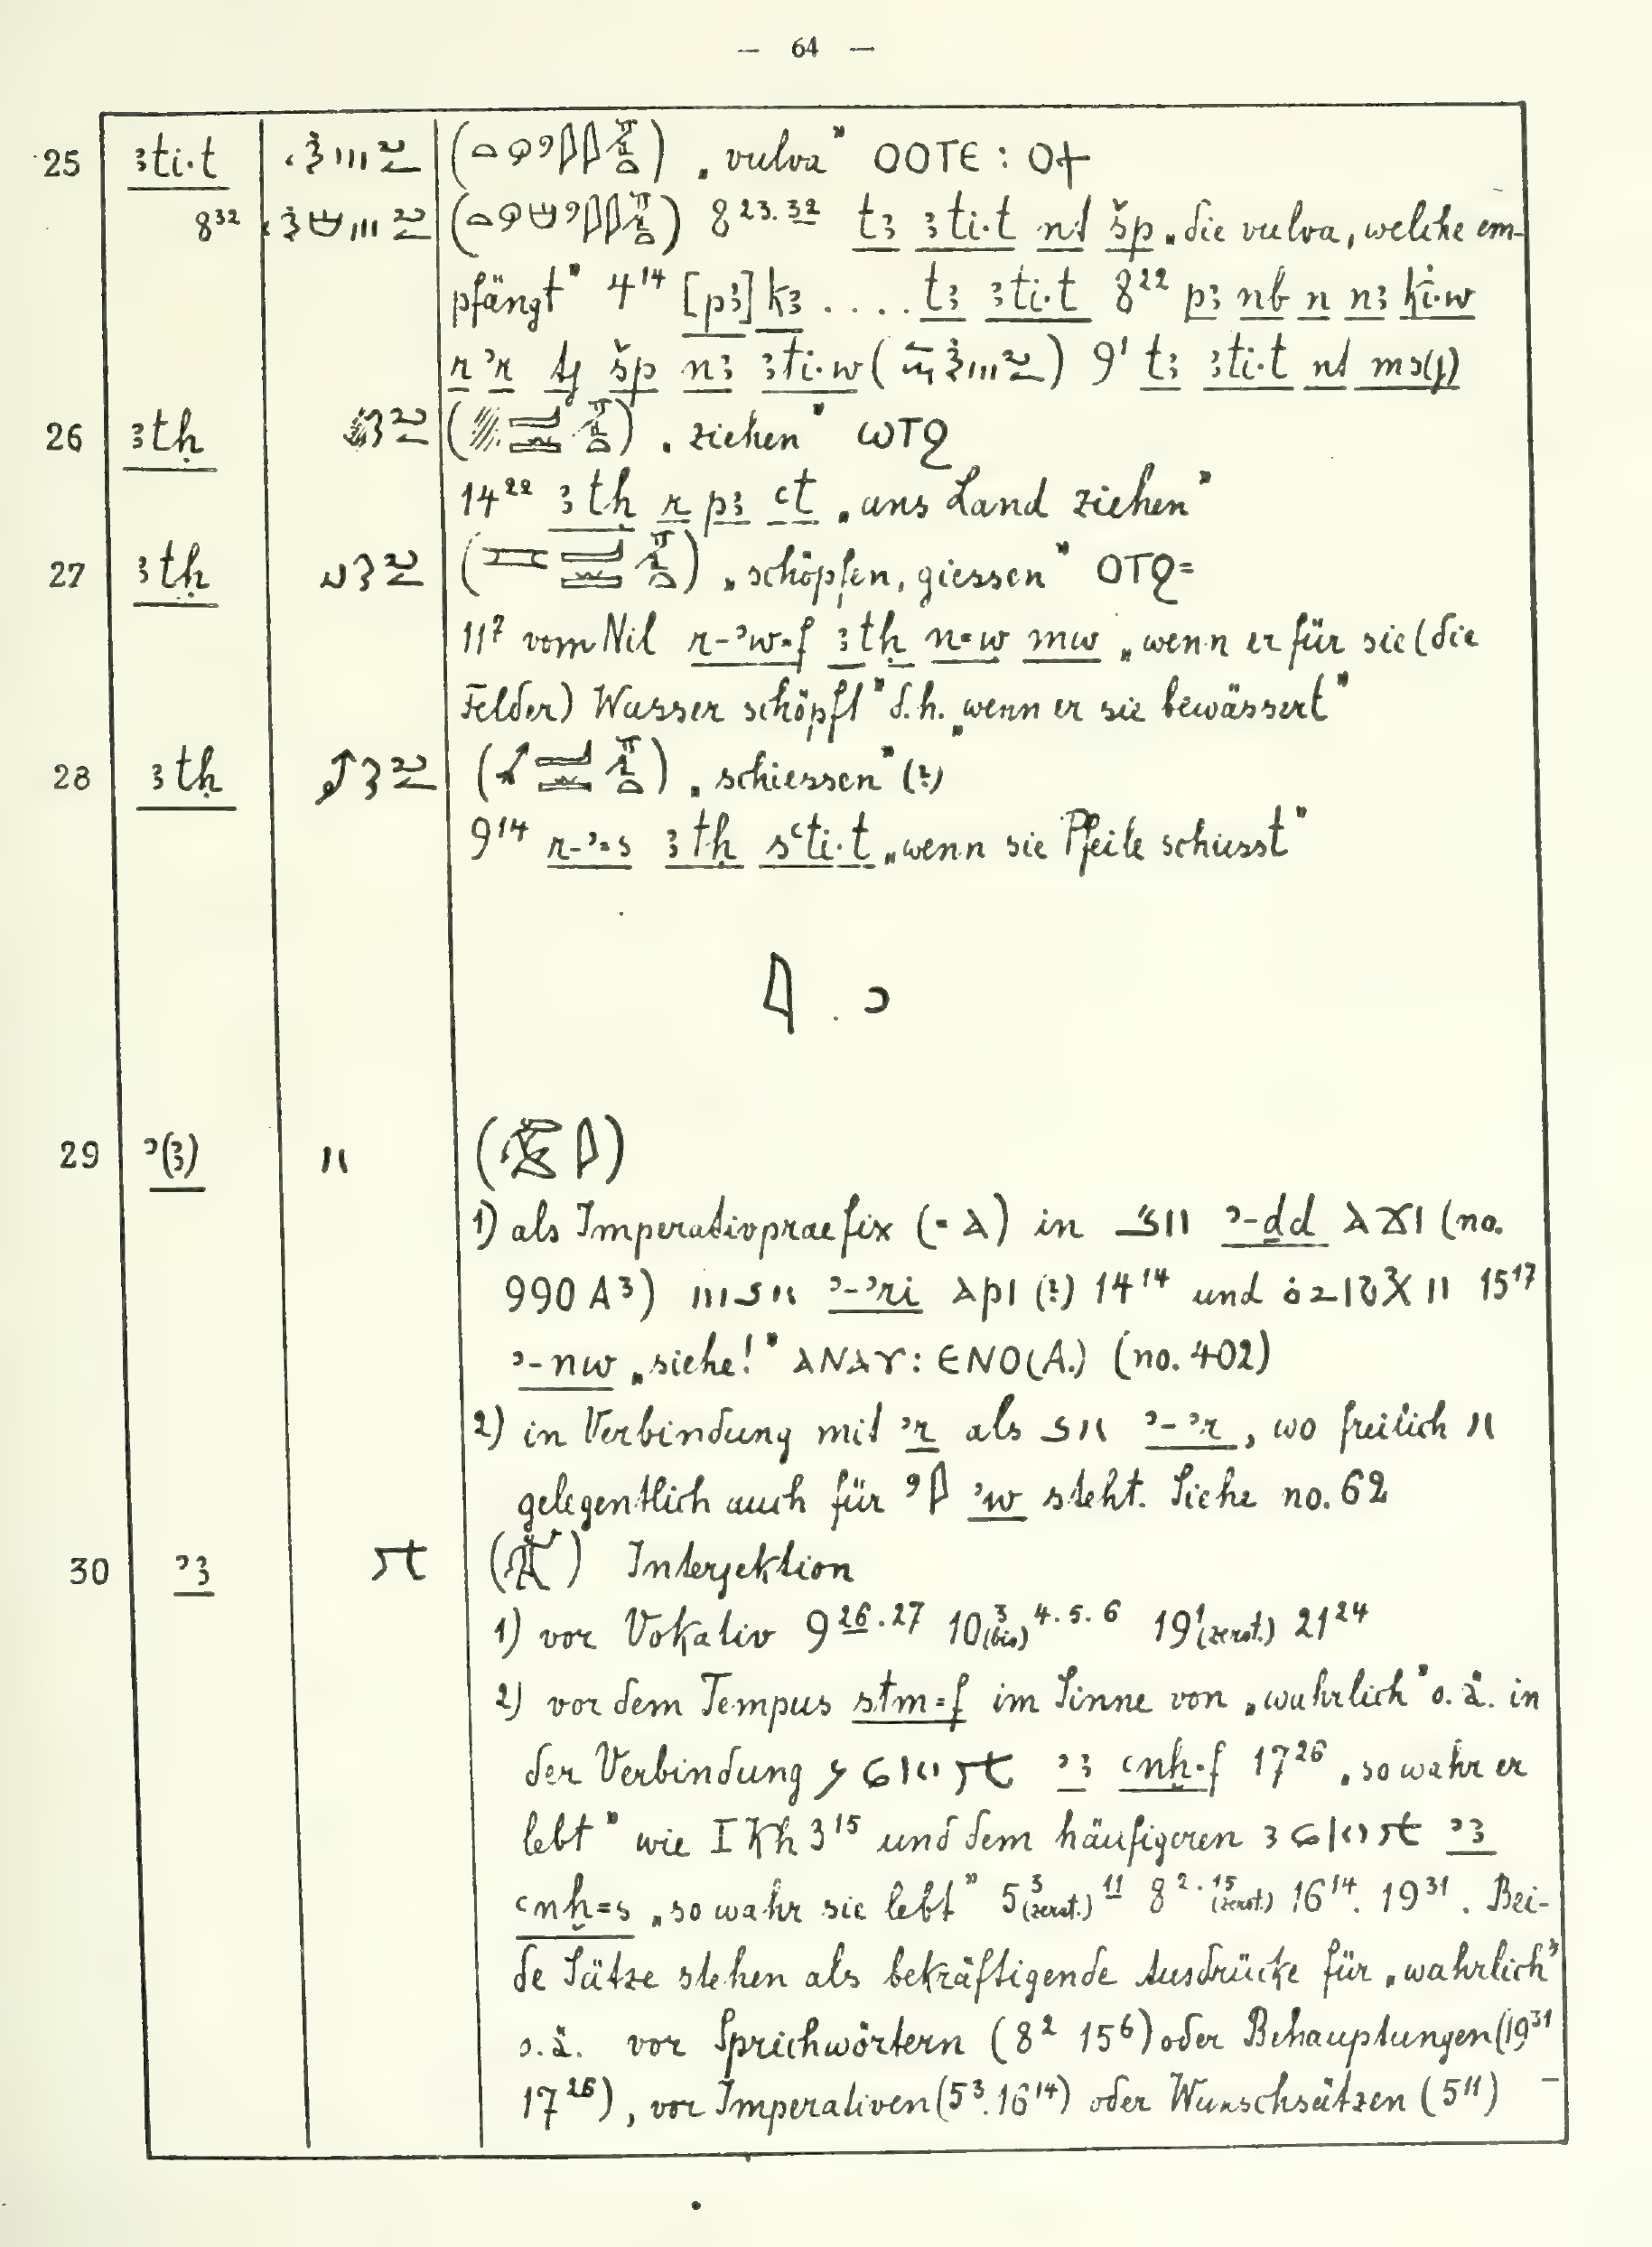 — 64 —
25 ꜣti·t ( ) „vulva” ⲟⲟⲧⲉ : ⲟϯ
8³² ( ) 8²³·³² tꜣ ꜣti·t nt šp „die vulva, welche em-
pfängt” 4¹⁴ [pꜣ] kꜣ .... tꜣ ꜣti·t 8²² pꜣ nb n nꜣ ki·w
r ʾr šp nꜣ ꜣti·w ( ) 9¹ tꜣ ꜣti·t nt
26 ꜣtḥ ( ) „ziehen” ⲱⲧϩ
14²² ꜣtḥ r pꜣ ʿt „ans Land ziehen”
27 ꜣtḥ ( ) „schöpfen, giessen” ⲟⲧϩ=
11⁷ vom Nil r-ʾw=f ꜣtḥ n=w mw „wenn er für sie (die
Felder) Wasser schöpft” d.h. „wenn er sie bewässert”
28 ꜣtḥ ( ) „schiessen” (?)
9¹⁴ r-ʾ=s ꜣtḥ sʿti·t „wenn sie Pfeile schiesst”
𓇋 . ʾ
29 ʾ(ꜣ) ( )
1) als Imperativpraefix (= ⲁ) in ʾ-ḏd ⲁϫⲓ (no.
990 A³) ʾ-ʾri ⲁⲣⲓ (?) 14¹⁴ und 15¹⁷
ʾ-nw „siehe!” ⲁⲛⲁⲩ : ⲉⲛⲟ (A.) (no. 402)
2) in Verbindung mit ʾr als ʾ-ʾr, wo freilich
gelegentlich auch für ʾw steht. Siehe no. 62
30 ʾꜣ ( ) Interjektion
1) vor Vokativ 9²⁶·²⁷ 10³(bis) ⁴·⁵·⁶ 19¹(zerst.) 21²⁴
2) vor dem Tempus stm=f im Sinne von „wahrlich” o.ä. in
der Verbindung ʾꜣ ʿnḫ=f 17²⁶ „so wahr er
lebt” wie I Kh 3¹⁵ und dem häufigeren ʾꜣ
ʿnḫ=s „so wahr sie lebt” 5³(zerst.) ¹¹ 8²·¹⁵(zerst.) 16¹⁴. 19³¹. Bei-
de Sätze stehen als bekräftigende Ausdrücke für „wahrlich”
o.ä. vor Sprichwörtern (8² 15⁶) oder Behauptungen (19³¹
17²⁶), vor Imperativen (5³. 16¹⁴) oder Wunschsätzen (5¹¹) –